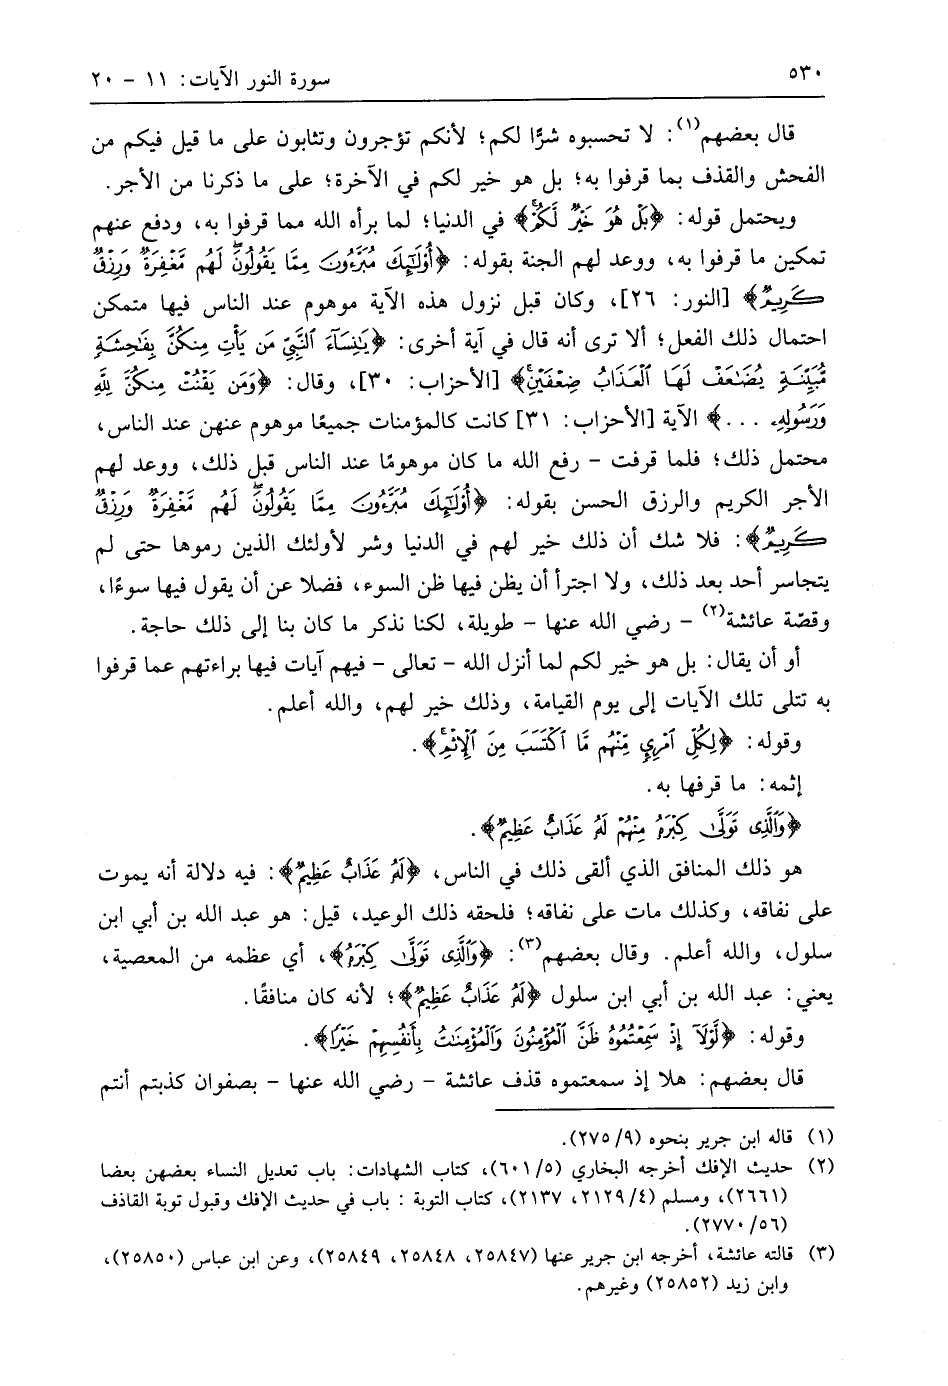 ٥٣٠
سورة النور الآيات: ١١ - ٢٠
قال بعضهم(١): لا تحسبوه شرًّا لكم؛ لأنكم تؤجرون وتثابون على ما قيل فيكم من
الفحش والقذف بما قرفوا به؛ بل هو خير لكم في الآخرة؛ على ما ذكرنا من الأجر.
ويحتمل قوله: ﴿بَلْ هُوَ خَيْرٌ لَّكُمْ﴾ في الدنيا؛ لما برأه الله مما قرفوا به، ودفع عنهم
تمكين ما قرفوا به، ووعد لهم الجنة بقوله: ﴿أُوْلَٰٓئِكَ مُبَرَّءُونَ مِمَّا يَقُولُونَۖ لَهُم مَّغْفِرَةٌ وَرِزْقٌ
كَرِيمٌ﴾ [النور: ٢٦]، وكان قبل نزول هذه الآية موهوم عند الناس فيها متمكن
احتمال ذلك الفعل؛ ألا ترى أنه قال في آية أخرى: ﴿يَٰنِسَآءَ ٱلنَّبِيِّ مَن يَأْتِ مِنكُنَّ بِفَٰحِشَةٍ
مُّبَيِّنَةٍ يُضَٰعَفْ لَهَا ٱلْعَذَابُ ضِعْفَيْنِۚ﴾ [الأحزاب: ٣٠]، وقال: ﴿وَمَن يَقْنُتْ مِنكُنَّ لِلَّهِ
وَرَسُولِهِۦ ...﴾ الآية [الأحزاب: ٣١] كانت كالمؤمنات جميعًا موهوم عنهن عند الناس،
محتمل ذلك؛ فلما قرفت - رفع الله ما كان موهومًا عند الناس قبل ذلك، ووعد لهم
الأجر الكريم والرزق الحسن بقوله: ﴿أُوْلَٰٓئِكَ مُبَرَّءُونَ مِمَّا يَقُولُونَۖ لَهُم مَّغْفِرَةٌ وَرِزْقٌ
كَرِيمٌ﴾: فلا شك أن ذلك خير لهم في الدنيا وشر لأولئك الذين رموها حتى لم
يتجاسر أحد بعد ذلك، ولا اجترأ أن يظن فيها ظن السوء، فضلا عن أن يقول فيها سوءًا،
وقصّة عائشة(٢) - رضي الله عنها - طويلة، لكنا نذكر ما كان بنا إلى ذلك حاجة.
أو أن يقال: بل هو خير لكم لما أنزل الله - تعالى - فيهم آيات فيها براءتهم عما قرفوا
به تتلى تلك الآيات إلى يوم القيامة، وذلك خير لهم، والله أعلم.
وقوله: ﴿لِكُلِّ ٱمْرِيٍٕ مِّنْهُم مَّا ٱكْتَسَبَ مِنَ ٱلْإِثْمِۚ﴾.
إثمه: ما قرفها به.
﴿وَٱلَّذِى تَوَلَّىٰ كِبْرَهُۥ مِنْهُمْ لَهُۥ عَذَابٌ عَظِيمٌ﴾.
هو ذلك المنافق الذي ألقى ذلك في الناس، ﴿لَهُۥ عَذَابٌ عَظِيمٌ﴾: فيه دلالة أنه يموت
على نفاقه، وكذلك مات على نفاقه؛ فلحقه ذلك الوعيد، قيل: هو عبد الله بن أبي ابن
سلول، والله أعلم. وقال بعضهم(٣): ﴿وَٱلَّذِى تَوَلَّىٰ كِبْرَهُۥ﴾، أي عظمه من المعصية،
يعني: عبد الله بن أبي ابن سلول ﴿لَهُۥ عَذَابٌ عَظِيمٌ﴾؛ لأنه كان منافقًا.
وقوله: ﴿لَّوْلَآ إِذْ سَمِعْتُمُوهُ ظَنَّ ٱلْمُؤْمِنُونَ وَٱلْمُؤْمِنَٰتُ بِأَنفُسِهِمْ خَيْرًا﴾.
قال بعضهم: هلا إذ سمعتموه قذف عائشة - رضي الله عنها - بصفوان كذبتم أنتم
(١) قاله ابن جرير بنحوه (٩/ ٢٧٥).
(٢) حديث الإفك أخرجه البخاري (٥/ ٦٠١)، كتاب الشهادات: باب تعديل النساء بعضهن بعضا
(٢٦٦١)، ومسلم (٤/ ٢١٢٩، ٢١٣٧)، كتاب التوبة : باب في حديث الإفك وقبول توبة القاذف
(٥٦/ ٢٧٧٠).
(٣) قالته عائشة، أخرجه ابن جرير عنها (٢٥٨٤٧، ٢٥٨٤٨، ٢٥٨٤٩)، وعن ابن عباس (٢٥٨٥٠)،
وابن زيد (٢٥٨٥٢) وغيرهم.